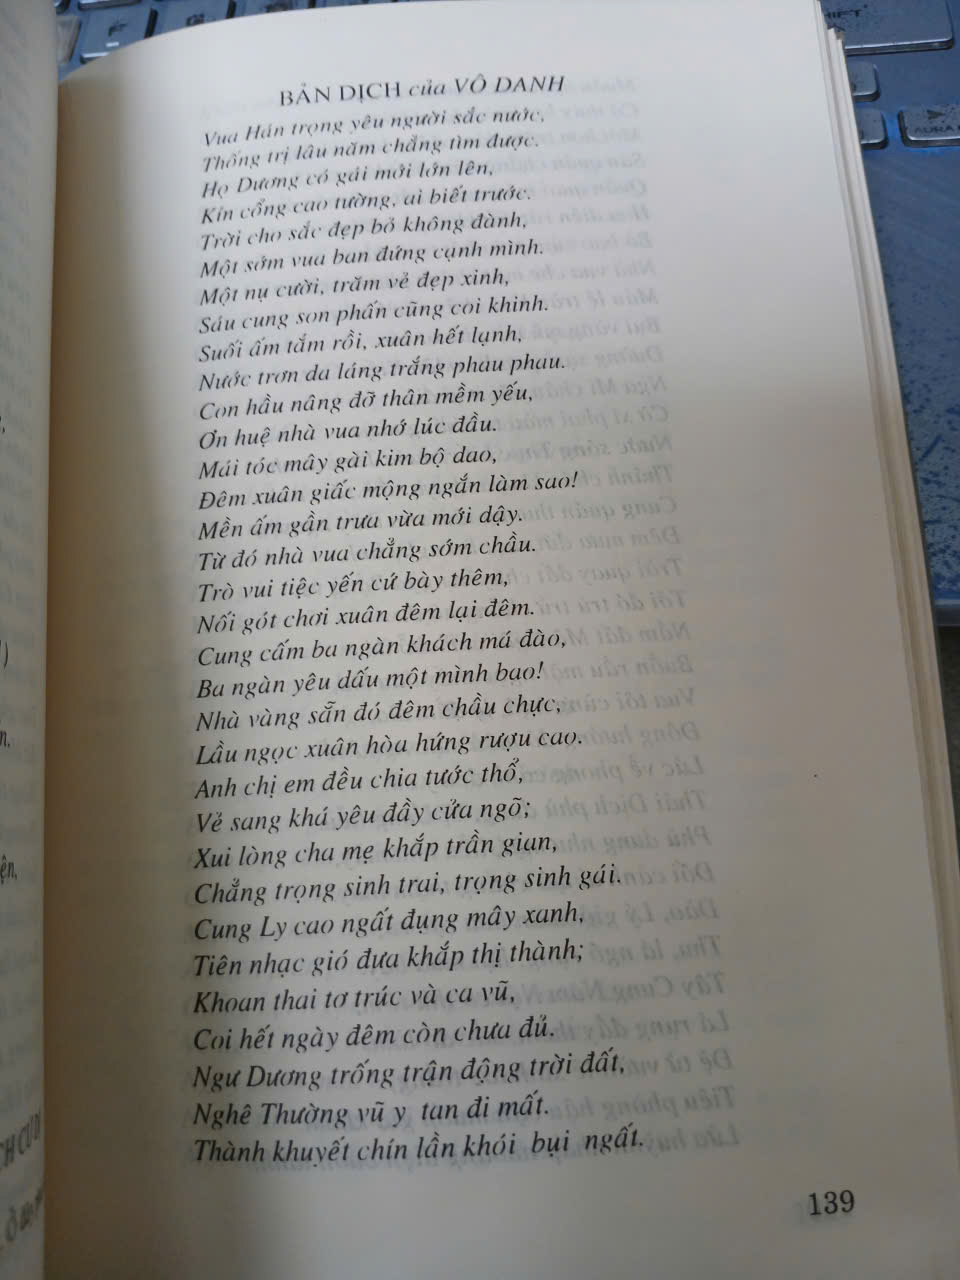 BẢN DỊCH của VÔ DANH
Vua Hán trọng yêu người sắc nước,
Thống trị lâu năm chẳng tìm được.
Họ Dương có gái mới lớn lên,
Kín cổng cao tường, ai biết trước.
Trời cho sắc đẹp bỏ không đành,
Một sớm vua ban đứng cạnh mình.
Một nụ cười, trăm vẻ đẹp xinh,
Sáu cung son phấn cũng coi khinh.
Suối ấm tắm rồi, xuân hết lạnh,
Nước trơn da láng trắng phau phau.
Con hầu nâng đỡ thân mềm yếu,
Ơn huệ nhà vua nhớ lúc đầu.
Mái tóc mây gài kim bộ dao,
Đêm xuân giấc mộng ngắn làm sao!
Mền ấm gần trưa vừa mới dậy.
Từ đó nhà vua chẳng sớm chầu.
Trò vui tiệc yến cứ bày thêm,
Nối gót chơi xuân đêm lại đêm.
Cung cấm ba ngàn khách má đào,
Ba ngàn yêu dấu một mình bạo!
Nhà vàng sẵn đó đêm chầu chực,
Lầu ngọc xuân hòa hứng rượu cao.
Anh chị em đều chia tước thổ,
Vẻ sang khá yêu đầy cửa ngõ;
Xui lòng cha mẹ khắp trần gian,
Chẳng trọng sinh trai, trọng sinh gái.
Cung Ly cao ngất đụng mây xanh,
Tiên nhạc gió đưa khắp thị thành;
Khoan thai tơ trúc và ca vũ,
Coi hết ngày đêm còn chưa đủ.
Ngư Dương trống trận động trời đất,
Nghê Thường vũ y tan đi mất.
Thành khuyết chín lần khói bụi ngất.
139